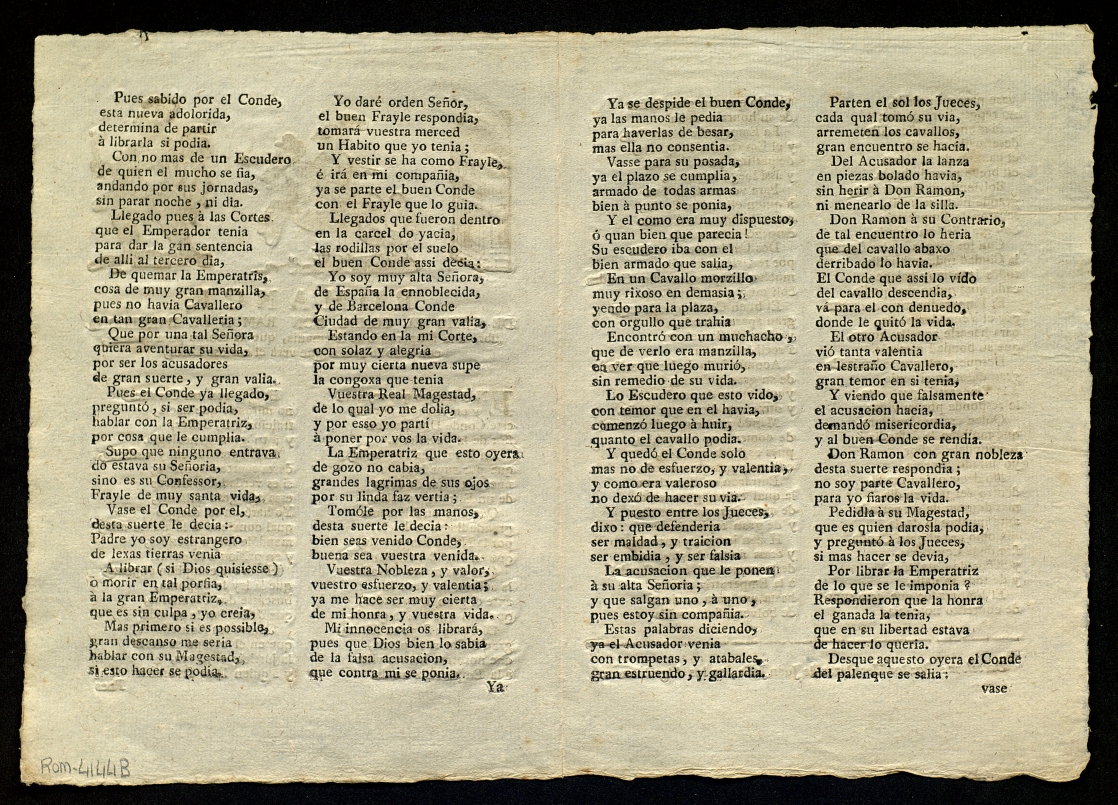 Pues sabido por el Conde,
esta nueva adolorida,
determina de partir
à librarla si podia.
Con no mas de un Escudero
de quien el mucho se fia,
andando por sus jornadas,
sin parar noche, ni dia.
Llegado pues à las Cortes
que el Emperador tenia
para dar la gan sentencia
de alli al tercero dia,
De quemar la Emperatris,
cosa de muy gran manzilla,
pues no havia Cavallero
en tan gran Cavalleria;
Que por una tal Señora
quiera aventurar su vida,
por ser los acusadores
de gran suerte, y gran valia.
Pues el Conde ya llegado,
preguntó, si ser podia,
hablar con la Emperatriz,
por cosa que le cumplia.
Supo que ninguno entrava
do estava su Señoria,
sino es su Confessor,
Frayle de muy santa vida,
Vase el Conde por el,
desta suerte le decia:
Padre yo soy estrangero
de lexas tierras venia
A librar (si Dios quisiesse)
ò morir en tal porfia,
à la gran Emperatriz,
que es sin culpa, yo creia,
Mas primero si es possible,
gran descanso me seria
hablar con su Magestad,
si esto hacer se podia.
Yo daré orden Señor,
el buen Frayle respondia,
tomará vuestra merced
un Habito que yo tenia;
Y vestir se ha como Frayle,
é irá en mi compañia,
ya se parte el buen Conde
con el Frayle que lo guia.
Llegados que fueron dentro
en la carcel do yacia,
las rodillas por el suelo
el buen Conde assi decia:
Yo soy muy alta Señora,
de España la ennoblecida,
y de Barcelona Conde
Ciudad de muy gran valia,
Estando en la mi Corte,
con solaz y alegria
por muy cierta nueva supe
la congoxa que tenia
Vuestra Real Magestad,
de lo qual yo me dolia,
y por esso yo partí
à poner por vos la vida.
La Emperatriz que esto oyera
de gozo no cabia,
grandes lagrimas de sus ojos
por su linda faz vertia;
Tomóle por las manos,
desta suerte le decia:
bien seas venido Conde,
buena sea vuestra venida.
Vuestra Nobleza, y valor,
vuestro esfuerzo, y valentia;
ya me hace ser muy cierta
de mi honra, y vuestra vida.
Mi innocencia os librará,
pues que Dios bien lo sabia
de la falsa acusacion,
que contra mi se ponia.
Ya
Ya se despide el buen Conde,
ya las manos le pedia
para haverlas de besar,
mas ella no consentia.
Vasse para su posada,
ya el plazo se cumplia,
armado de todas armas
bien à punto se ponia,
Y el como era muy dispuesto,
ó quan bien que parecia!
Su escudero iba con el
bien armado que salia,
En un Cavallo morzillo
muy rixoso en demasia;
yendo para la plaza,
con orgullo que trahia
Encontró con un muchacho,
que de verlo era manzilla,
en ver que luego murió,
sin remedio de su vida.
Lo Escudero que esto vido,
con temor que en el havia,
comenzó luego à huir,
quanto el cavallo podia.
Y quedó el Conde solo
mas no de esfuerzo, y valentia,
y como era valeroso
no dexó de hacer su via.
Y puesto entre los Jueces,
dixo: que defenderia
ser maldad, y traicion
ser embidia, y ser falsia
La acusacion que le ponen
à su alta Señoria;
y que salgan uno, à uno,
pues estoy sin compañia.
Estas palabras diciendo,
ya el Acusador venia
con trompetas, y atabales,
gran estruendo, y gallardia.
Parten el sol los Jueces,
cada qual tomó su via,
arremeten los cavallos,
gran encuentro se hacia.
Del Acusador la lanza
en piezas bolado havia,
sin herir à Don Ramon,
ni menearlo de la silla.
Don Ramon à su Contrario,
de tal encuentro lo heria
que del cavallo abaxo
derribado lo havia.
El Conde que assi lo vído
del cavallo descendia,
vá para el con denuedo,
donde le quitó la vida.
El otro Acusador
vió tanta valentia
en lestraño Cavallero,
gran temor en si tenia,
Y viendo que falsamente
el acusacion hacia,
demandó misericordia,
y al buen Conde se rendia.
Don Ramon con gran nobleza
desta suerte respondia;
no soy parte Cavallero,
para yo fiaros la vida.
Pedidla à su Magestad,
que es quien darosla podia,
y preguntó à los Jueces,
si mas hacer se devia,
Por librar la Emperatriz
de lo que se le imponia?
Respondieron que la honra
el ganada la tenia,
que en su libertad estava
de hacer lo queria.
Desque aquesto oyera el Conde
del palenque se salia:
vase
Rom-4144B